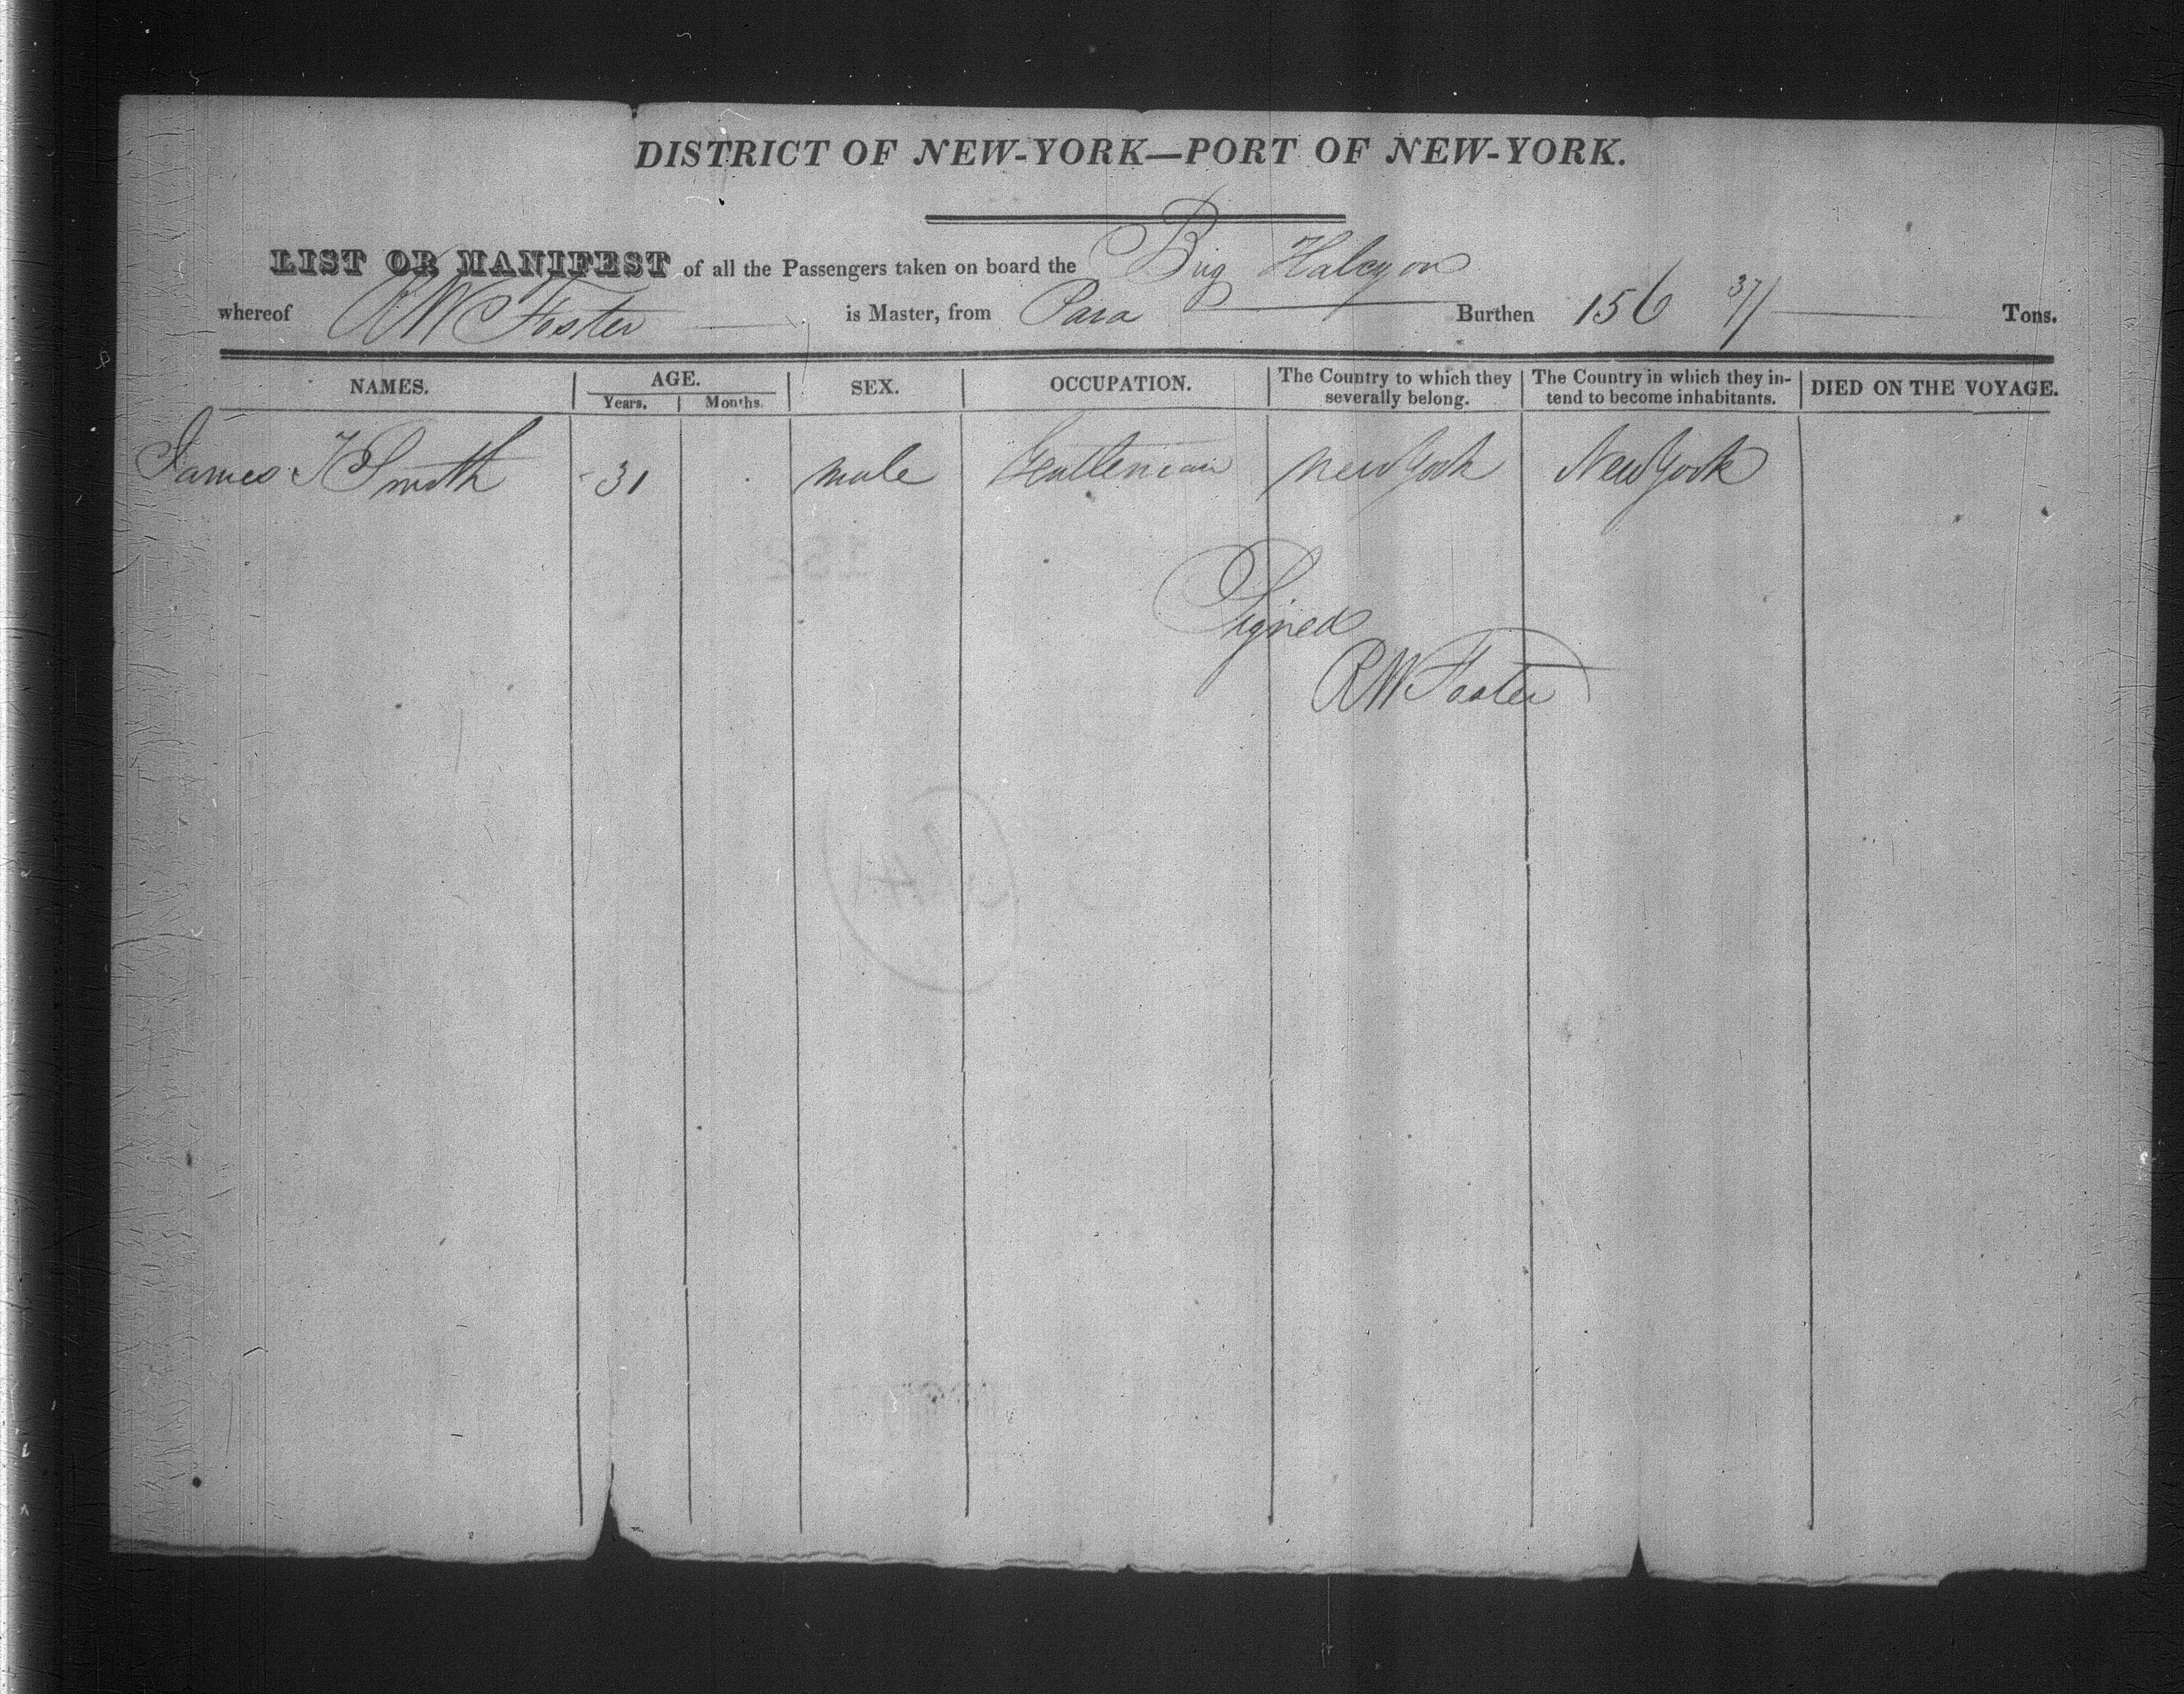 DISTRICT OF NEW-YORK—PORT OF NEW-YORK.
LIST OR MANIFEST of all the Passengers taken on board the Brig Halcyon
whereof RW Foster is Master, from Para Burthen 156 37/ Tons.
NAMES. AGE. SEX. OCCUPATION. The Country to which they severally belong. The Country in which they intend to become inhabitants. DIED ON THE VOYAGE.
Years. Months.
James T Smith 31 male Gentleman New York New York
Signed
RW Foster